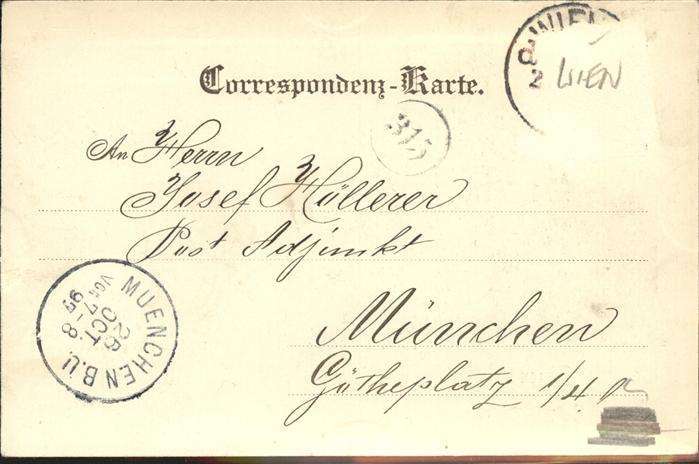 WIEN
WIEN
Correspondenz-Karte.
315
An Herrn
Josef Höllerer
Post Adjunkt
München
Götheplatz 1/4
MUENCHEN B.U.
26
OCT.
7-8